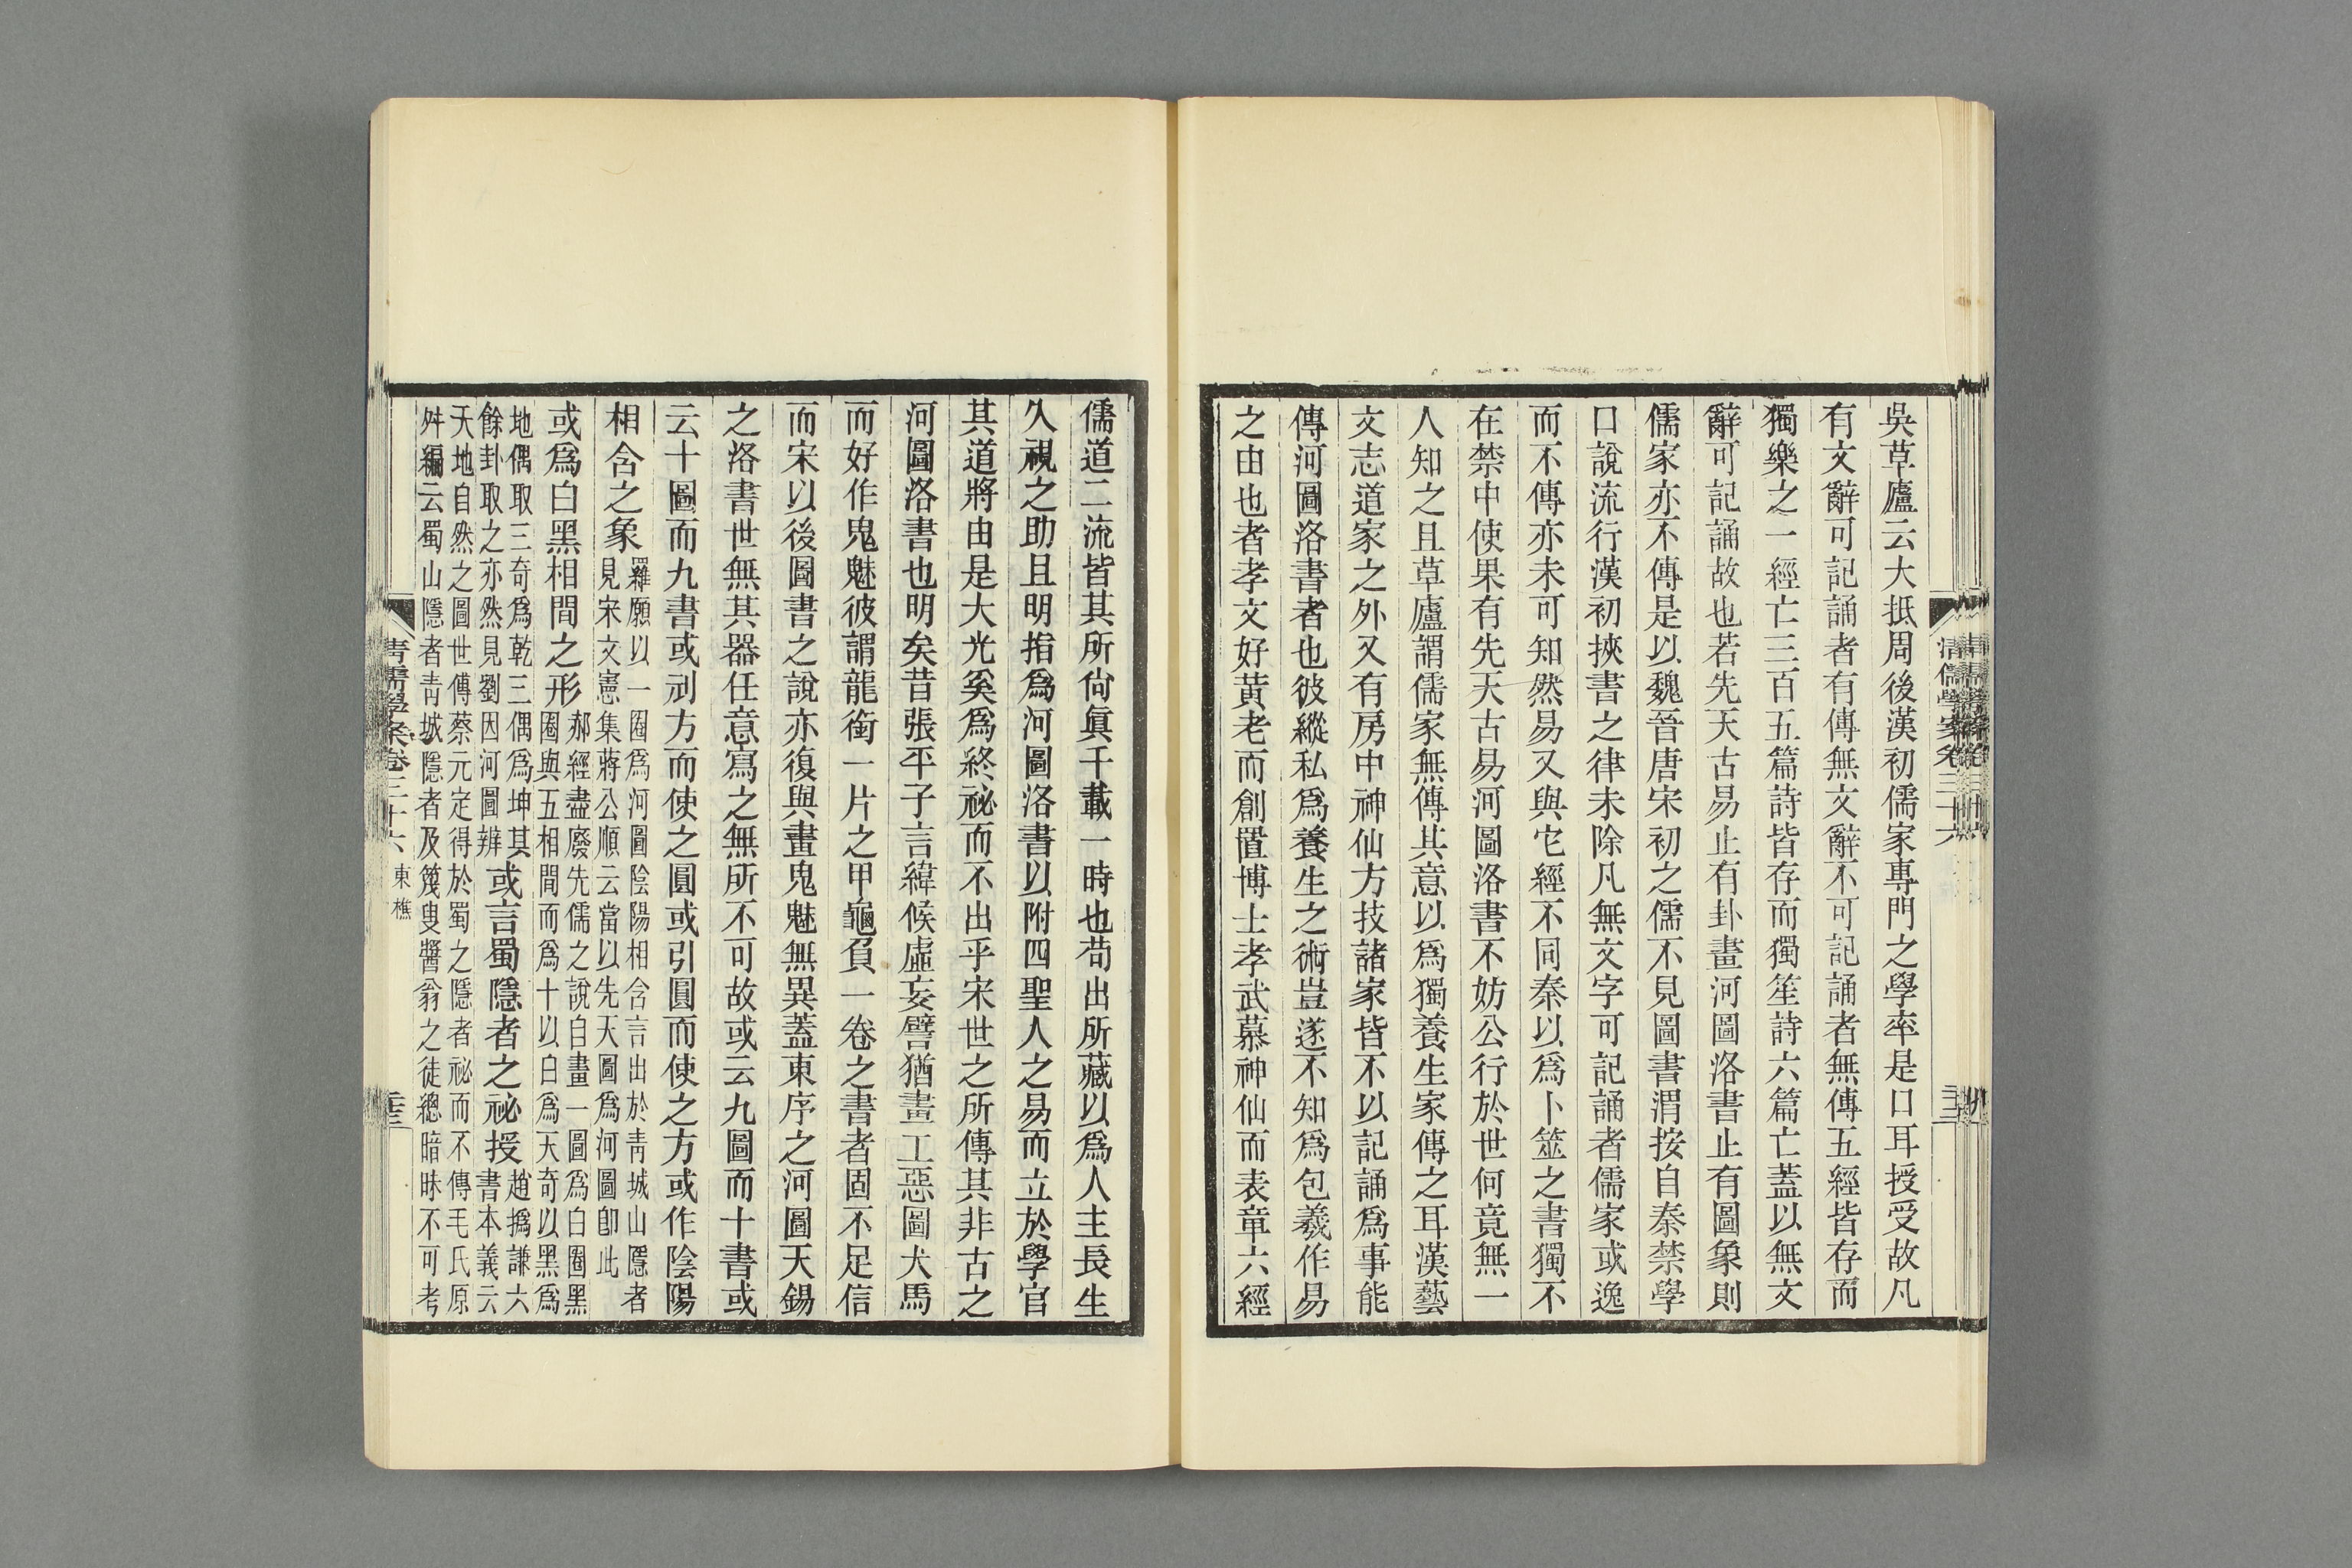 吳草廬云大抵周後漢初儒家專門之學率是口耳授受故凡
有文辭可記誦者有傳無文辭不可記誦者無傳五經皆存而
獨樂之一經亡三百五篇詩皆存而獨笙詩六篇亡蓋以無文
辭可記誦故也若先天古易止有卦畫河圖洛書止有圖象則
儒家亦不傳是以魏晉唐宋初之儒不見圖書渭按自秦禁學
口說流行漢初挾書之律未除凡無文字可記誦者儒家或逸
而不傳亦未可知然易又與它經不同秦以爲卜筮之書獨不
在禁中使果有先天古易河圖洛書不妨公行於世何竟無一
人知之且草廬謂儒家無傳其意以爲獨養生家傳之耳漢藝
文志道家之外又有房中神仙方技諸家皆不以記誦爲事能
傳河圖洛書者也彼縱私爲養生之術豈遂不知爲包羲作易
之由也者孝文好黃老而創置博士孝武慕神仙而表章六經
清儒學案卷三十六
儒道二流皆其所尙眞千載一時也苟出所藏以爲人主長生
久視之助且明指爲河圖洛書以附四聖人之易而立於學官
其道將由是大光奚爲終祕而不出乎宋世之所傳其非古之
河圖洛書也明矣昔張平子言緯候虛妄譬猶畫工惡圖犬馬
而好作鬼魅彼謂龍銜一片之甲龜負一卷之書者固不足信
而宋以後圖書之說亦復與畫鬼魅無異蓋東序之河圖天錫
之洛書世無其器任意寫之無所不可故或云九圖而十書或
云十圖而九書或刓方而使之圓或引圓而使之方或作陰陽
相含之象羅願以一圈爲河圖陰陽相含言出於青城山隱者
見宋文憲集蔣公順云當以先天圖爲河圖卽此
或爲白黑相間之形郝經盡廢先儒之說自畫一圖爲白圈黑
圈與五相間而爲十以白爲天奇以黑爲
地偶取三奇爲乾三偶爲坤其
餘卦取之亦然見劉因河圖辨或言蜀隱者之祕授趙撝謙六
書本義云
天地自然之圖世傳蔡元定得於蜀之隱者祕而不傳毛氏原
舛編云蜀山隱者青城隱者及篾叟醬翁之徒總暗昧不可考
清儒學案卷三十六 東樵